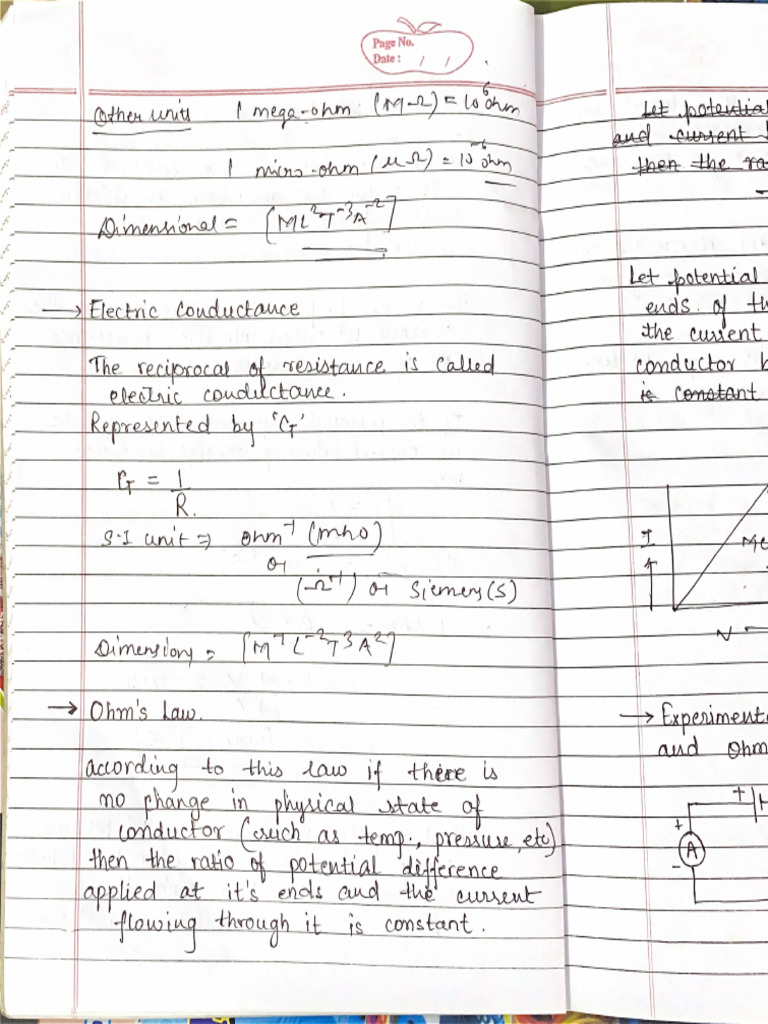 Page No.
Date : / /
Other units 1 mega-ohm (M-Ω) = 10⁶ ohm
1 micro-ohm (μΩ) = 10⁻⁶ ohm
Dimensional = [ML²T⁻³A⁻²]
→ Electric conductance
The reciprocal of resistance is called
electric conductance.
Represented by 'G'
G = 1/R.
S.I unit ⇒ ohm⁻¹ (mho)
or
(Ω⁻¹) or Siemens (S)
Dimensions = [M⁻¹L⁻²T³A²]
→ Ohm's Law.
according to this law if there is
no change in physical state of
conductor (such as temp., pressure, etc)
then the ratio of potential difference
applied at it's ends and the current
flowing through it is constant.
Let potential
and current
then the ra
Let potential
ends. of th
the current
conductor b
is constant
I
V
→ Experimenta
and Ohm
+
+
A
-